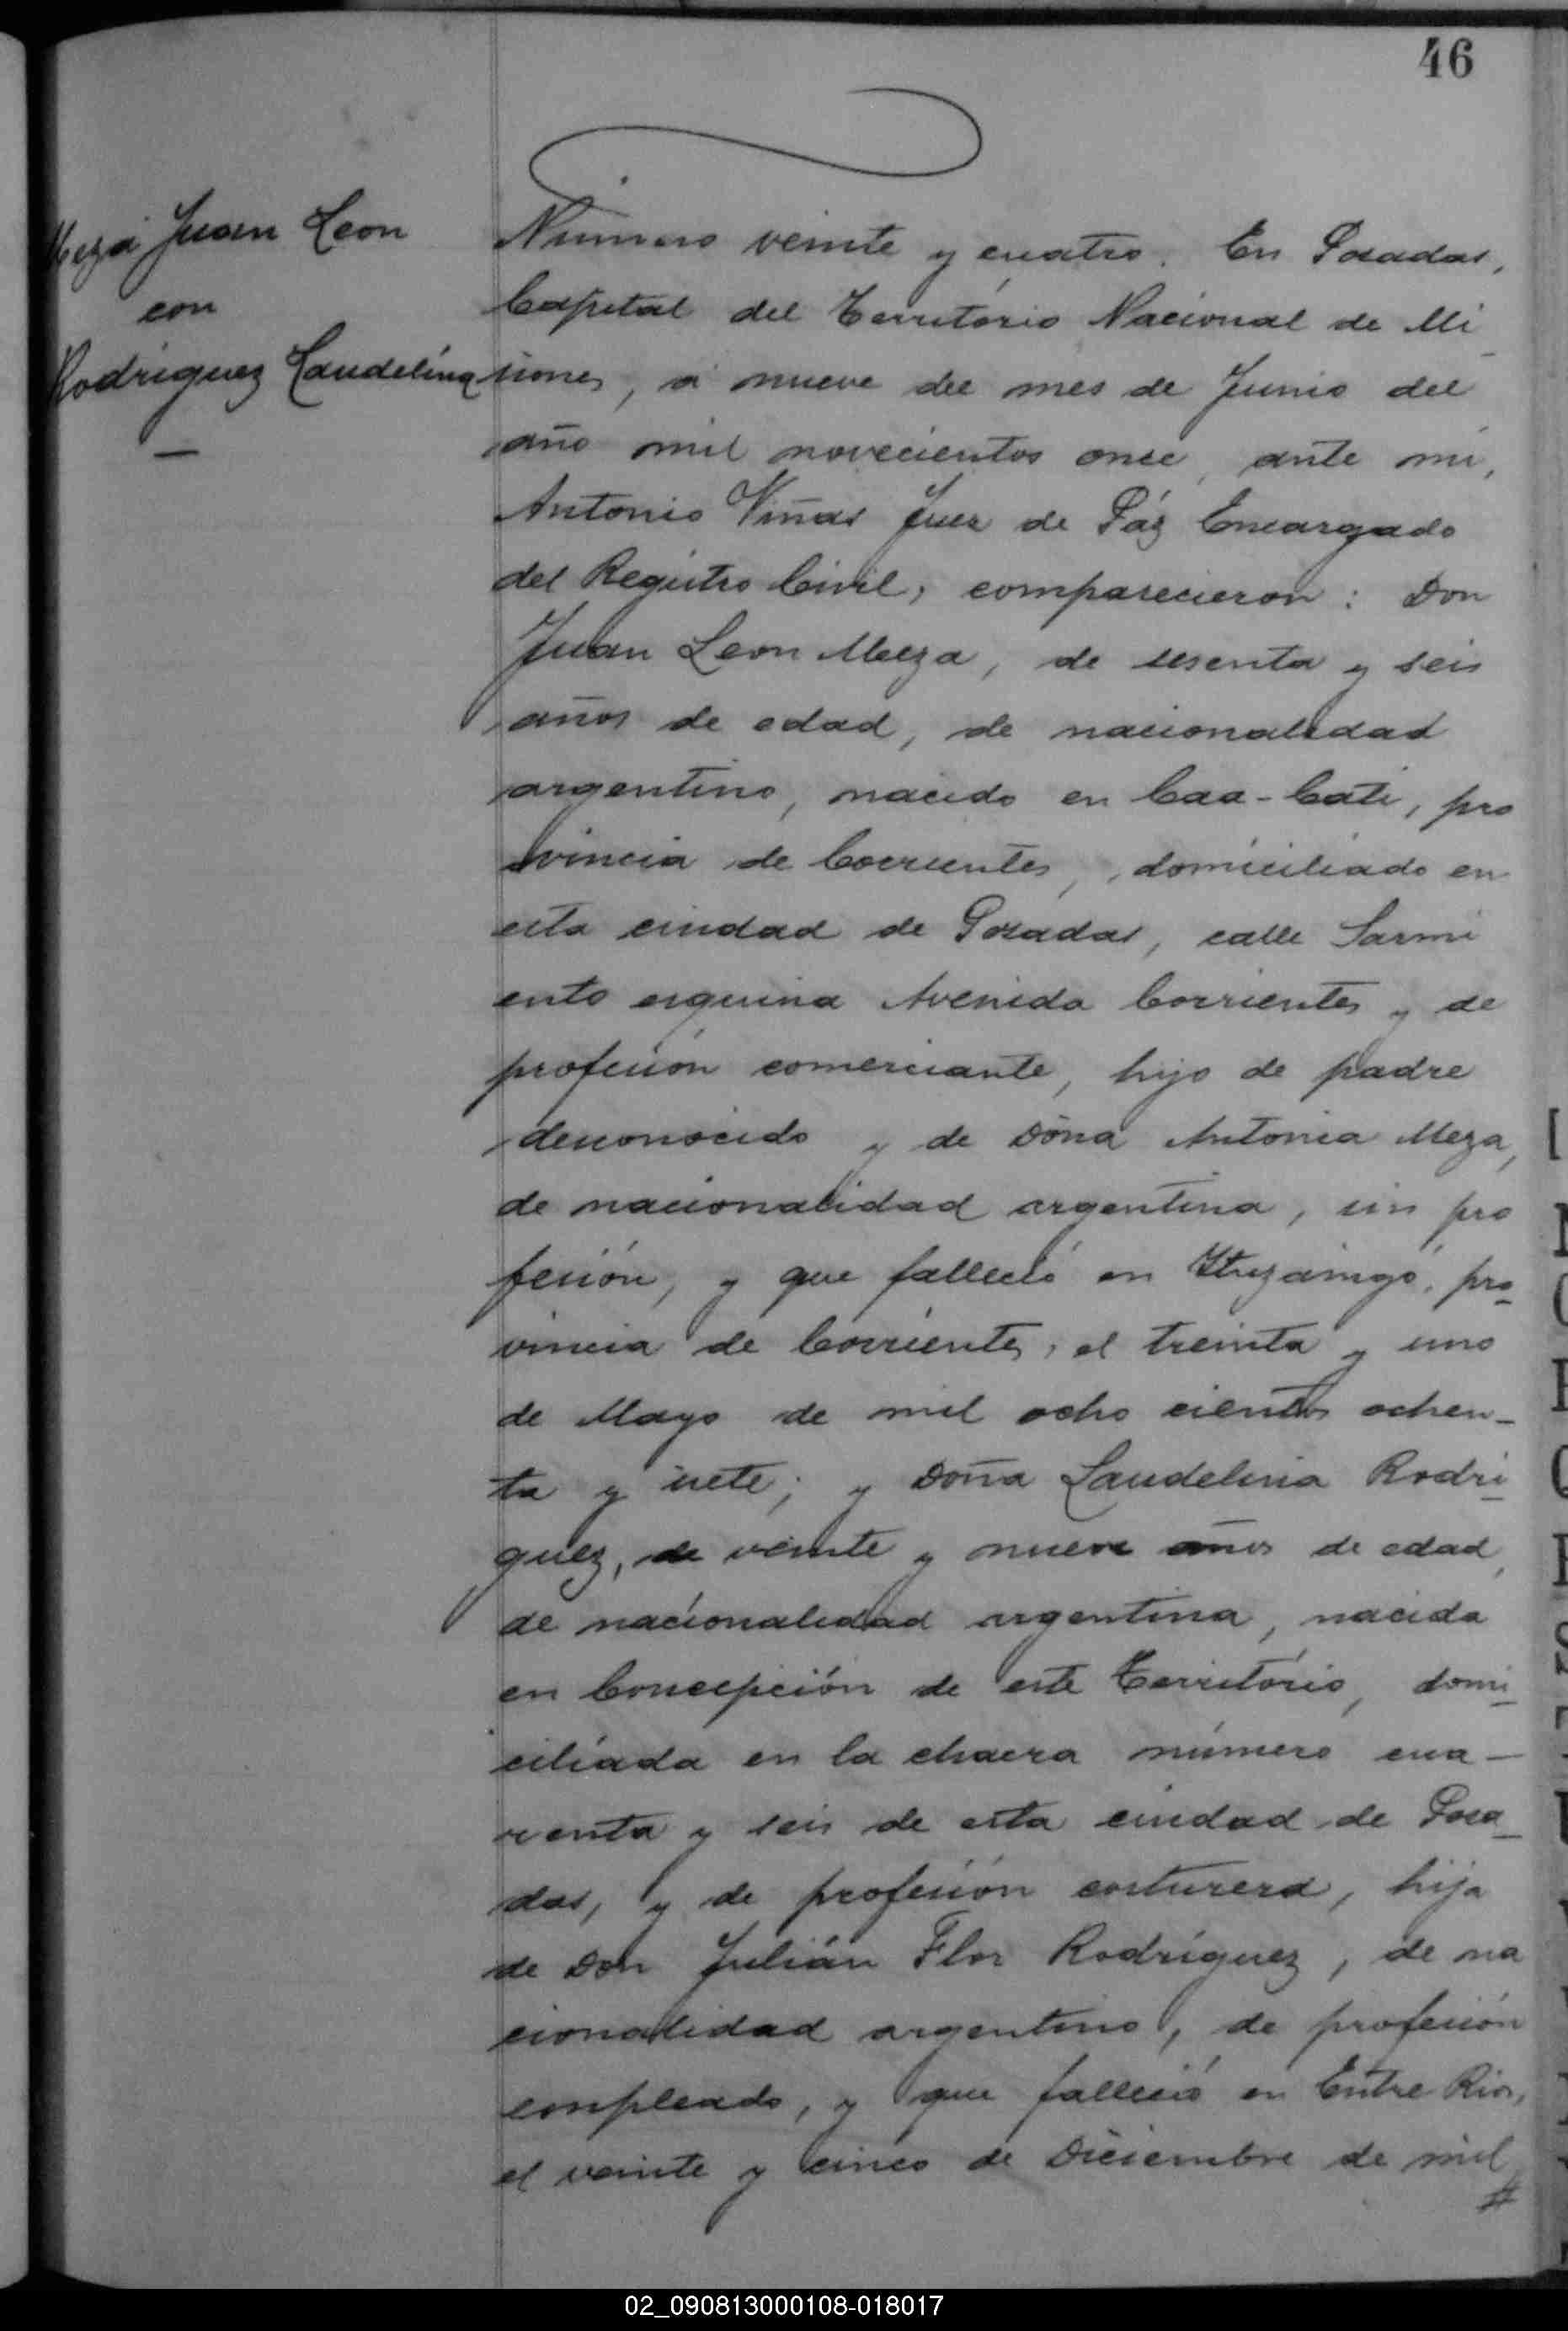 46
Meza Juan Leon
con
Rodriguez Laudelina
Número veinte y cuatro. En Posadas,
Capital del Territorio Nacional de Mi
siones, á nueve del mes de Junio del
año mil novecientos once, ante mi,
Antonio Viñas Juez de Páz Encargado
del Registro Civil, comparecieron: Don
Juan Leon Meza, de sesenta y seis
años de edad, de nacionalidad
argentino, nacido en Caa-Cati, pro
vincia de Corrientes, domiciliado en
esta ciudad de Posadas, calle Sarmi
ento esquina Avenida Corrientes y de
profesión comerciante, hijo de padre
desconocido y de Doña Antonia Meza,
de nacionalidad argentina, sin pro
fesión, y que falleció en Ituzaingó, pro-
vincia de Corrientes, el treinta y uno
de Mayo de mil ocho cientos ochen-
ta y siete; y Doña Laudelina Rodri-
guez, de veinte y nueve años de edad,
de nacionalidad argentina, nacida
en Concepción de este Territorio, domi-
ciliada en la chacra número cua-
renta y seis de esta ciudad de Posa-
das, y de profesión costurera, hija
de Don Julián Flor Rodríguez, de na
cionalidad argentino, de profesión
empleado, y que falleció en Entre Rios,
el veinte y cinco de Diciembre de mil
#
02_090813000108-018017